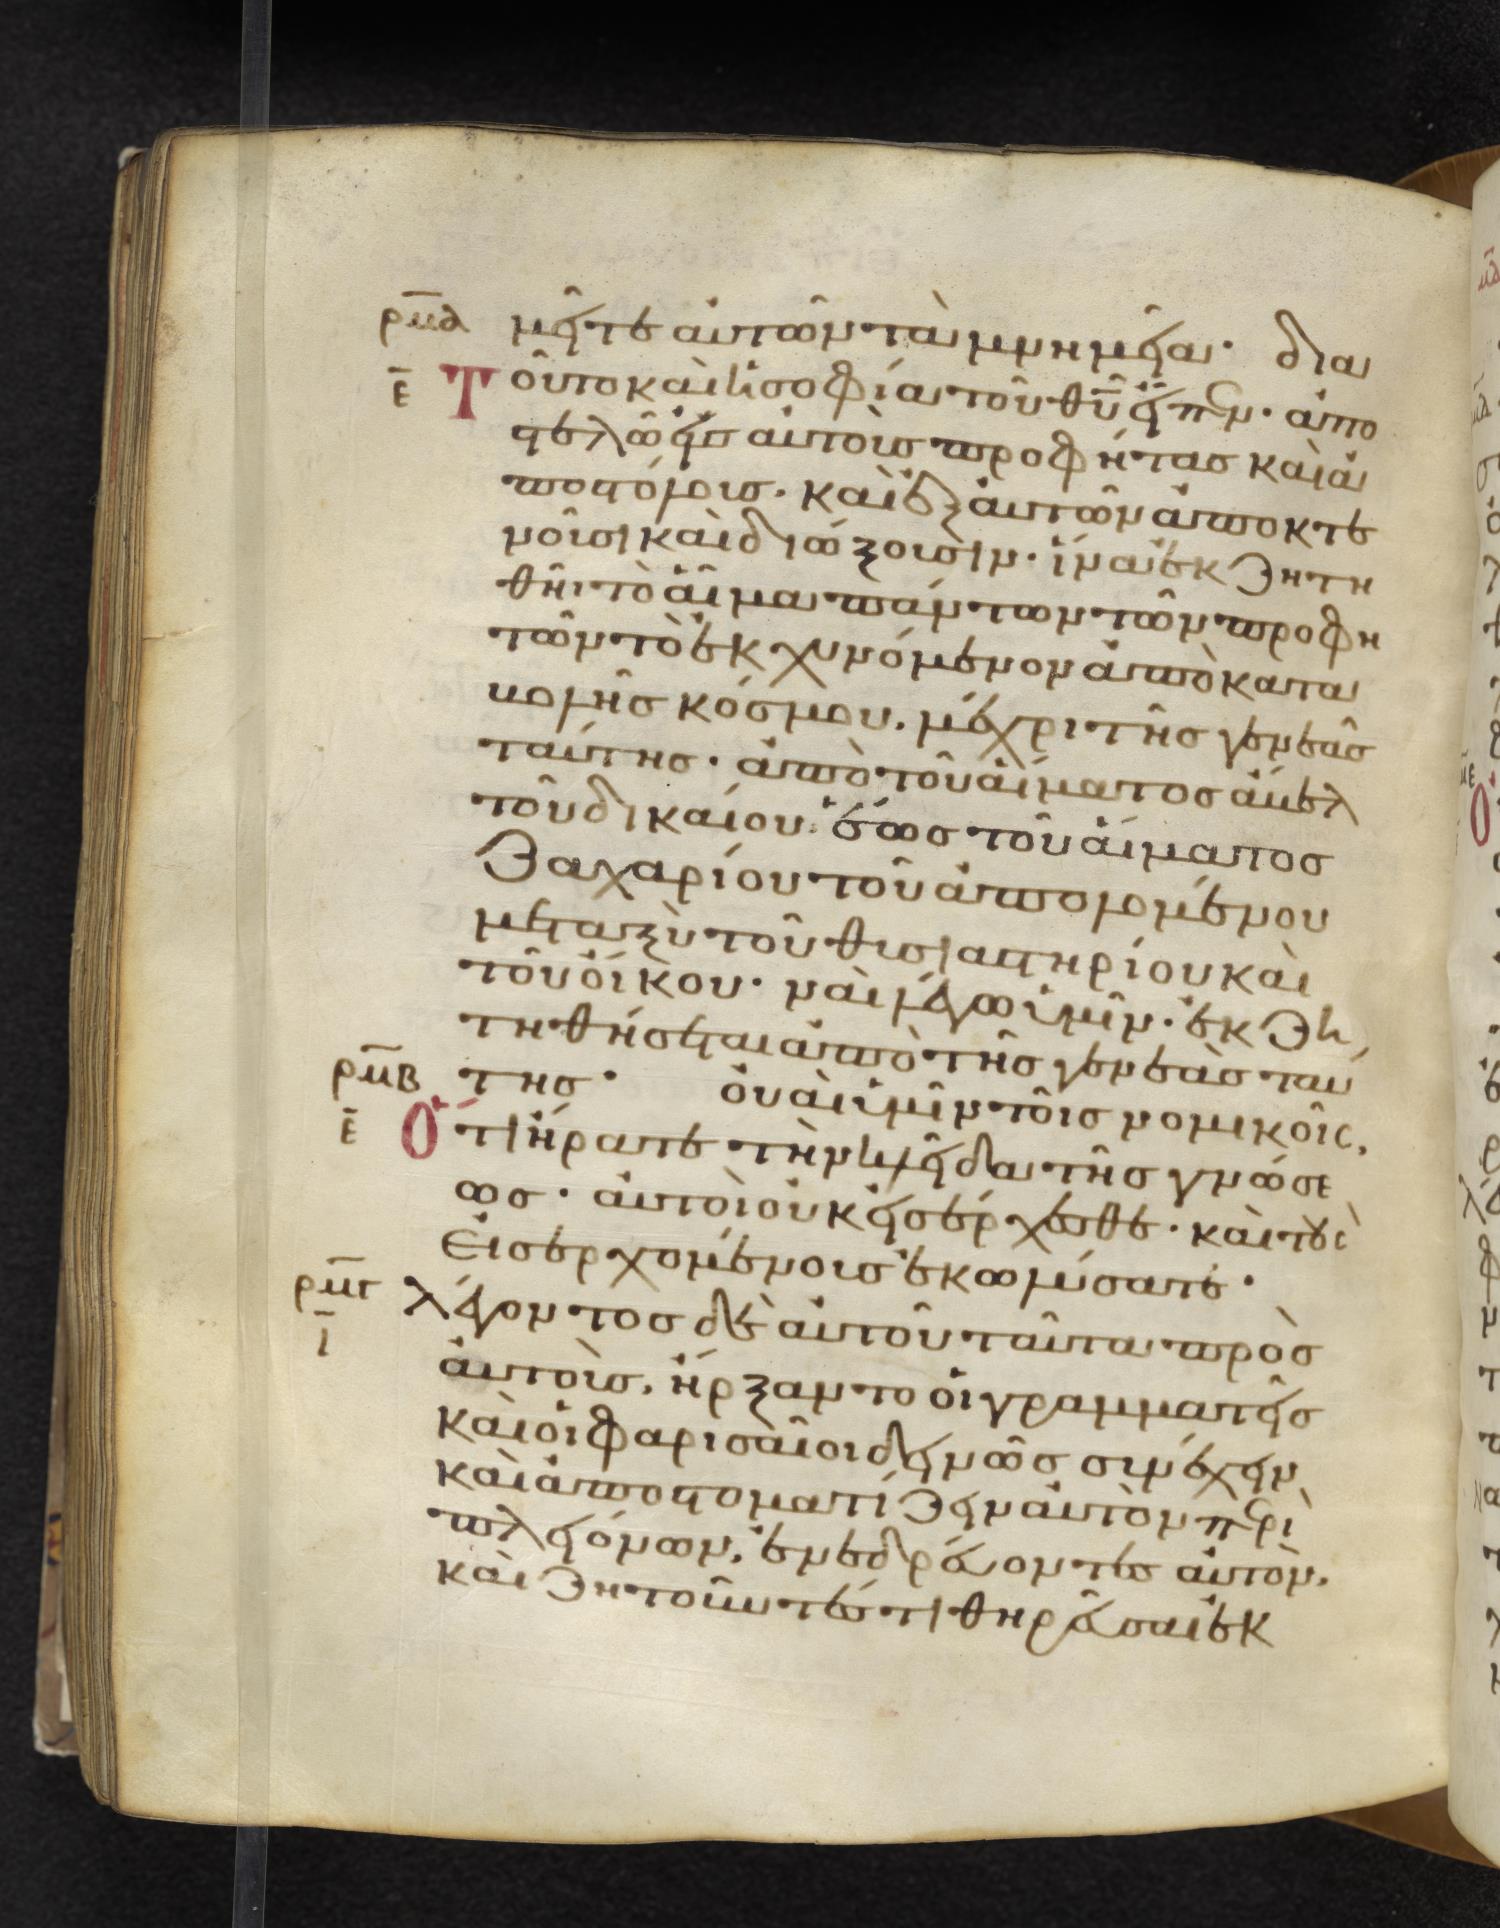 ρμα μεῖτε αὐτῶν τὰ μνημεῖα· δια
ε Τοῦτο καὶ ἡ σοφία τοῦ θῦ εἶπεν· ἀπο
στελῶ εἰς αὐτοὺς προφήτας καὶ ἀ
ποστόλους· καὶ ἐξ αὐτῶν ἀποκτε
νοῦσι καὶ διώξουσιν· ἵνα ἐκζητη
θῆι τὸ αἷμα πάντων τῶν προφη
τῶν τὸ ἐκχυνόμενον ἀπὸ κατα
βολῆς κόσμου, μέχρι τῆς γενεᾶς
ταύτης· ἀπὸ τοῦ αἵματος ἄβελ
τοῦ δικαίου. ἕως τοῦ αἵματος
Ζαχαρίου τοῦ ἀπολομένου
μεταξὺ τοῦ θυσιαστηρίου καὶ
τοῦ οἴκου· ναὶ λέγω ὑμῖν· ἐκζη
τηθήσεται ἀπὸ τῆς γενεὰς ταύ
ρμβ της· οὐαὶ ὑμῖν τοῖς νομικοῖς,
ε Ὅτι ἤρατε τὴν κλεῖδα τῆς γνώσε
ως· αὐτοὶ οὐκ εἰσέρχεσθε· καὶ τοὺς
Εἰσερχομένους ἐκωλύσατε·
ρμγ λέγοντος δὲ αὐτοῦ ταῦτα πρὸς
ι αὐτοὺς, ἤρξαντο οἱ γραμματεῖς
καὶ οἱ φαρισαῖοι δεινῶς συνέχειν
καὶ ἀποστοματίζειν αὐτὸν περὶ
πλειόνων, ἐνεδρεύοντες αὐτὸν,
καὶ ζητοῦντές τι θηρεῦσαι ἐκ